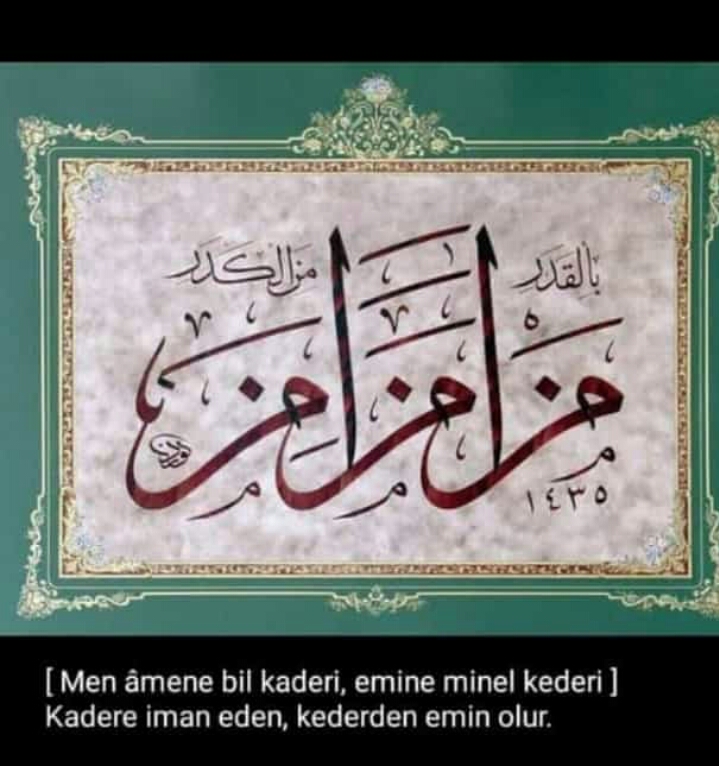 بِالقَدَرِ مِنَ الكَدَرِ
مَنْ اٰمَنَ اَمِنَ
١٤٣٥
[ Men âmene bil kaderi, emine minel kederi ]
Kadere iman eden, kederden emin olur.